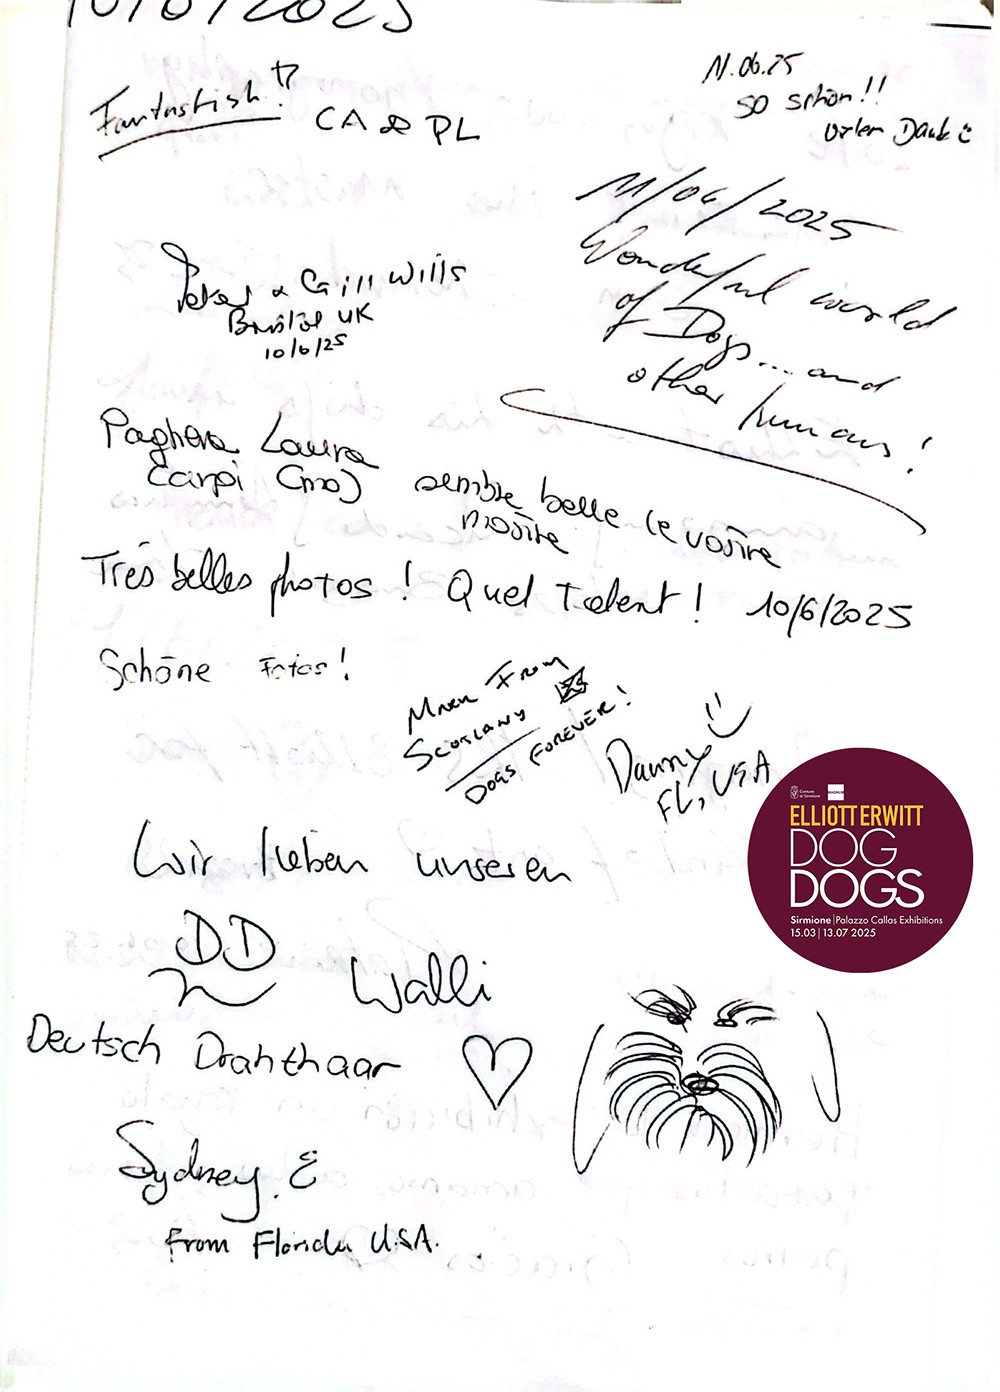 10/6/2025
Fantastish!!
CA & PL
11.06.25
so schön!!
Vielen Dank
11/06/2025
Wonderful world
of Dogs... and
other humans!
Peter & Gill Wills
Bristol UK
10/6/25
Paghera Laura
Carpi (mo)
sembre belle le vostre
mostre
Très belles photos! Quel talent! 10/6/2025
Schöne Fotos!
Mark From
Scotland
DOGS FOREVER!
Danny
FL, USA
Comune
di Sirmione
MAGNUM
ELLIOTT ERWITT
DOG
DOGS
Sirmione | Palazzo Callas Exhibitions
15.03 | 13.07 2025
Wir lieben unseren
DD
Walli
Deutsch Drahthaar
Sydney. E
From Florida U.S.A.